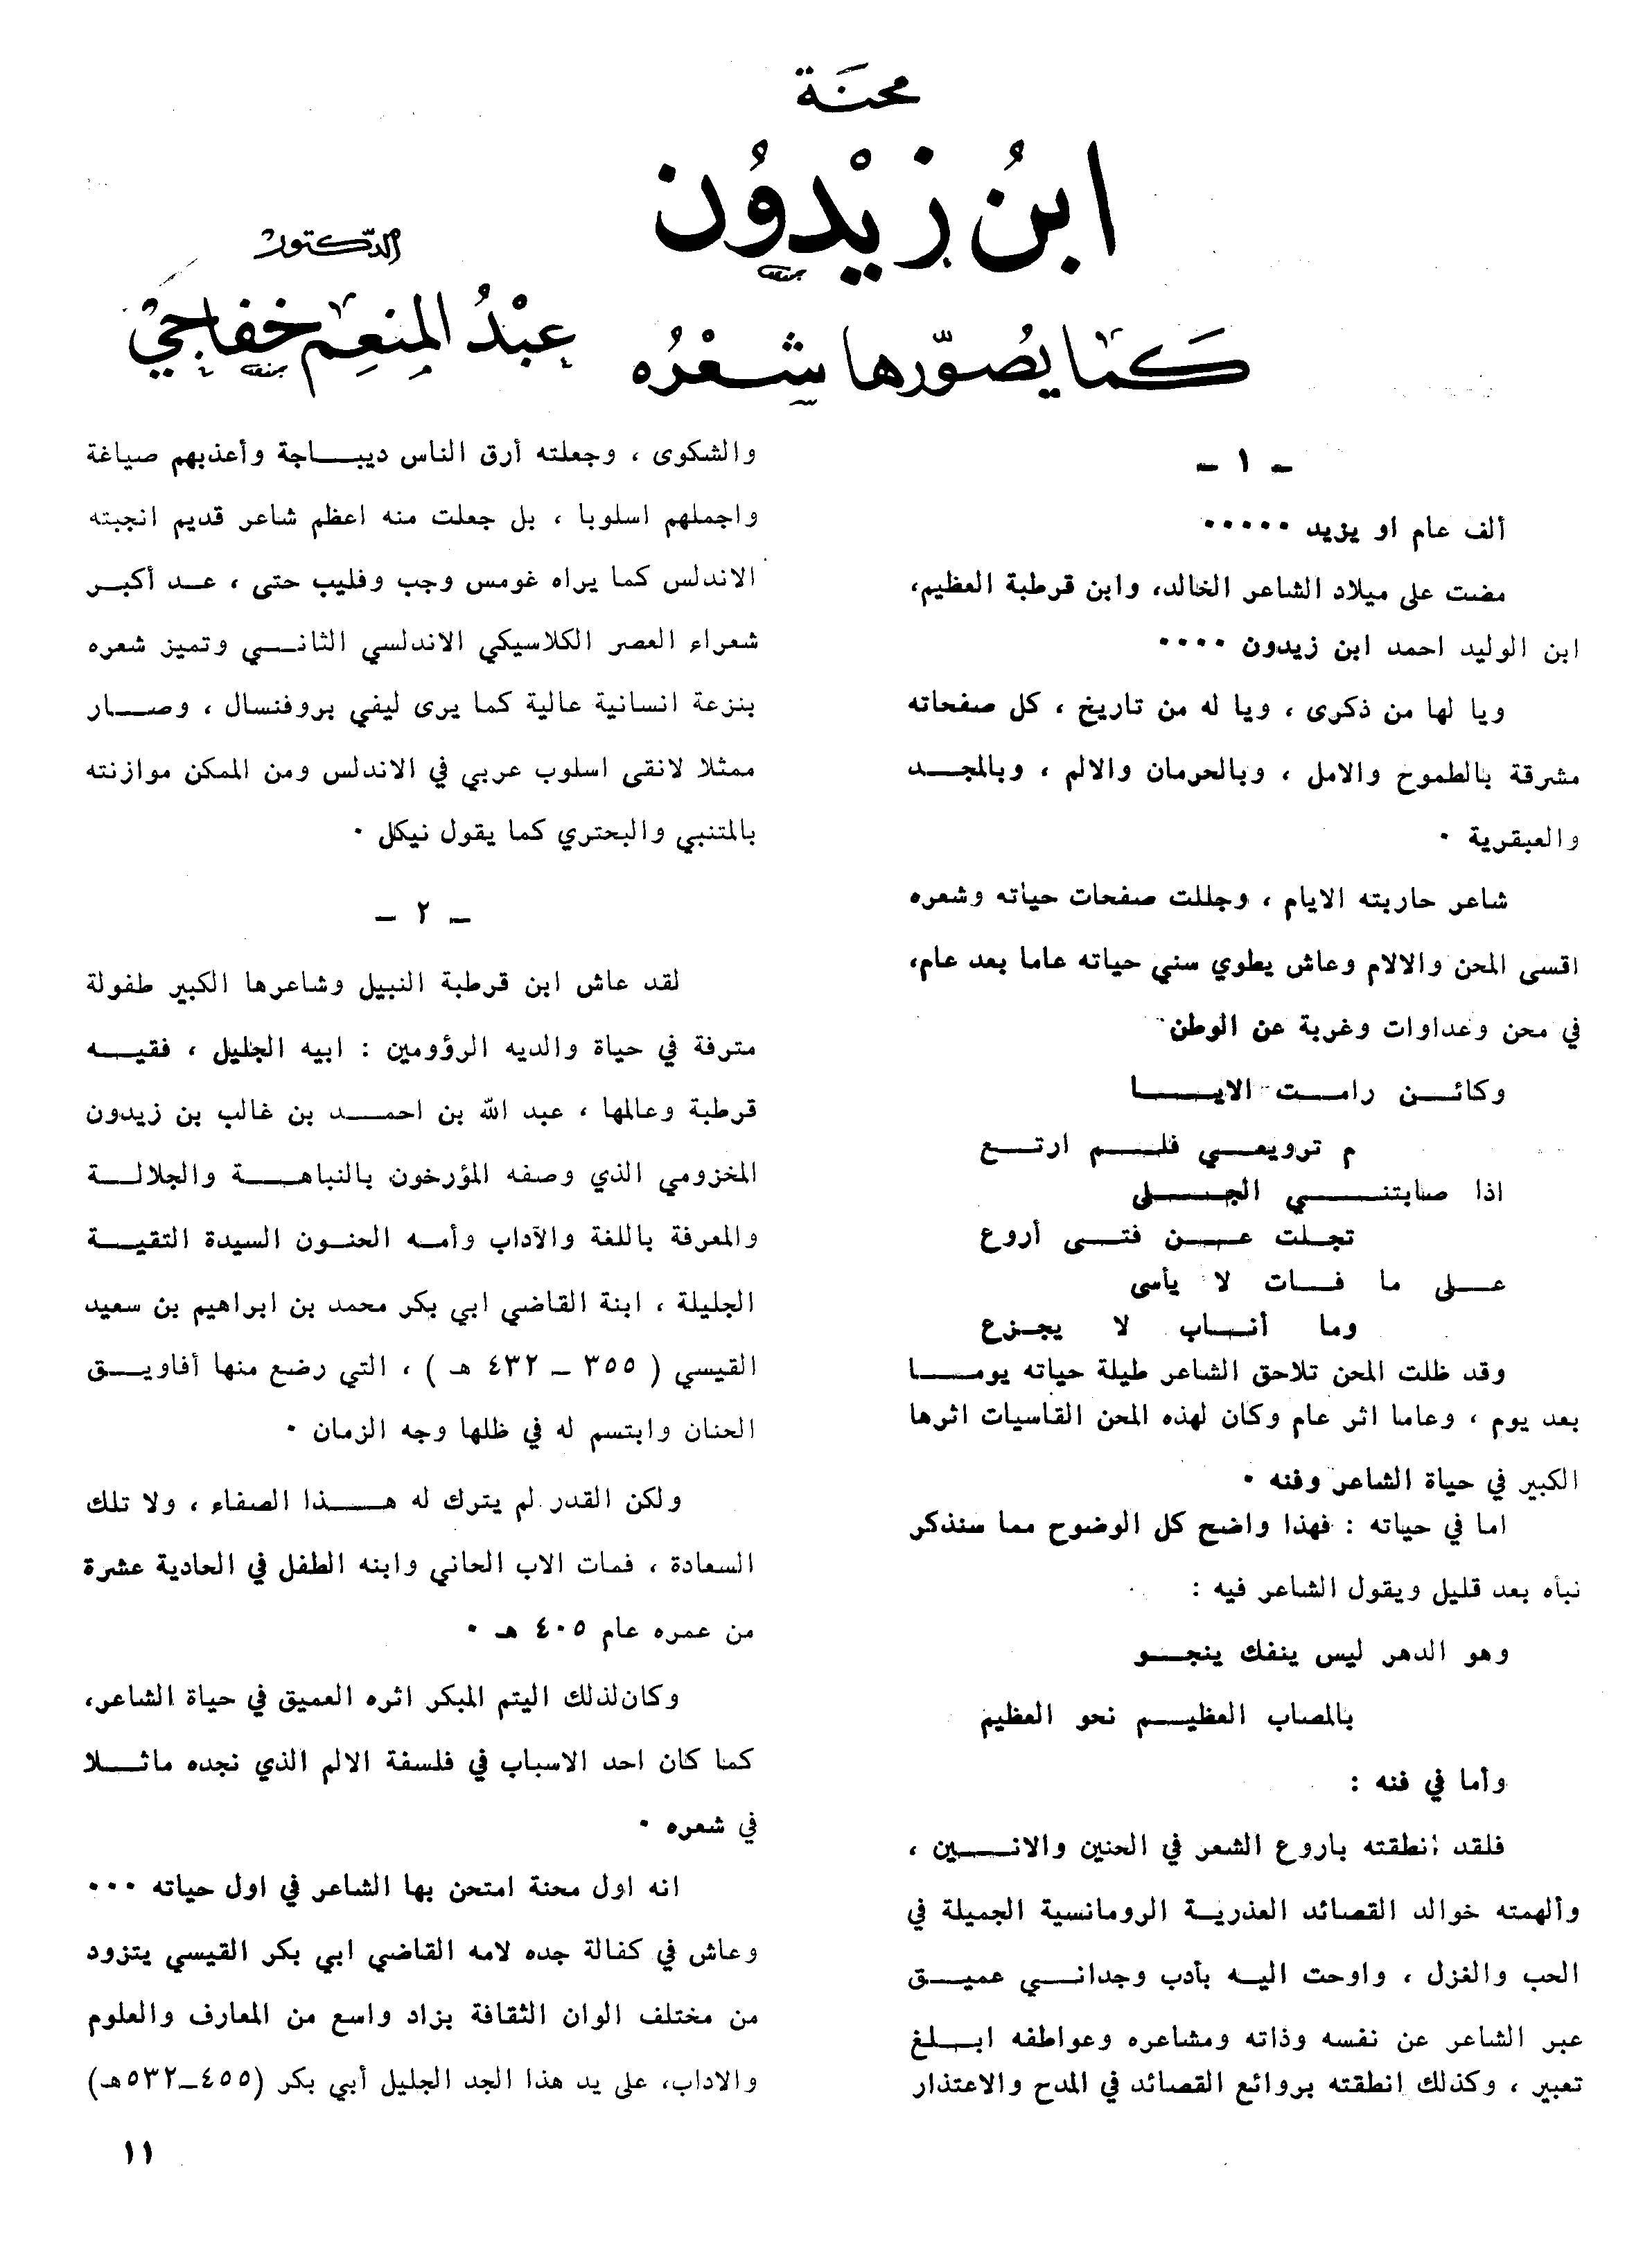 محنة
ابنُ زيْدوُن
كما يُصوّرها شعْرُه
الدكتور
عبْدُ المنعم خفاجي
- ١ -
ألف عام او يزيد .....
مضت على ميلاد الشاعر الخالد، وابن قرطبة العظيم،
ابن الوليد احمد ابن زيدون ....
ويا لها من ذكرى ، ويا له من تاريخ ، كل صفحاته
مشرقة بالطموح والامل ، وبالحرمان والالم ، وبالمجد
والعبقرية .
شاعر حاربته الايام ، وجللت صفحات حياته وشعره
اقسى المحن والالام وعاش يطوي سني حياته عاما بعد عام،
في محن وعداوات وغربة عن الوطن
وكائن رامت الايا
م ترويعي فلم ارتع
اذا صابتني الجلى
تجلت عن فتى أروع
على ما فات لا يأسى
وما أناب لا يجزع
وقد ظلت المحن تلاحق الشاعر طيلة حياته يوما
بعد يوم ، وعاما اثر عام وكان لهذه المحن القاسيات اثرها
الكبير في حياة الشاعر وفنه .
اما في حياته : فهذا واضح كل الوضوح مما سنذكر
نبأه بعد قليل ويقول الشاعر فيه :
وهو الدهر ليس ينفك ينجو
بالمصاب العظيم نحو العظيم
وأما في فنه :
فلقد انطقته باروع الشعر في الحنين والانين ،
وألهمته خوالد القصائد العذرية الرومانسية الجميلة في
الحب والغزل ، واوحت اليه بأدب وجداني عميق
عبر الشاعر عن نفسه وذاته ومشاعره وعواطفه ابلغ
تعبير ، وكذلك انطقته بروائع القصائد في المدح والاعتذار
والشكوى ، وجعلته أرق الناس ديباجة وأعذبهم صياغة
واجملهم اسلوبا ، بل جعلت منه اعظم شاعر قديم انجبته
الاندلس كما يراه غومس وجب وفليب حتى ، عد أكبر
شعراء العصر الكلاسيكي الاندلسي الثاني وتميز شعره
بنزعة انسانية عالية كما يرى ليفي بروفنسال ، وصار
ممثلا لانقى اسلوب عربي في الاندلس ومن الممكن موازنته
بالمتنبي والبحتري كما يقول نيكل .
- ٢ -
لقد عاش ابن قرطبة النبيل وشاعرها الكبير طفولة
مترفة في حياة والديه الرؤومين : ابيه الجليل ، فقيه
قرطبة وعالمها ، عبد الله بن احمد بن غالب بن زيدون
المخزومي الذي وصفه المؤرخون بالنباهة والجلالة
والمعرفة باللغة والآداب وأمه الحنون السيدة التقية
الجليلة ، ابنة القاضي ابي بكر محمد بن ابراهيم بن سعيد
القيسي ( ٣٥٥ - ٤٣٢ هـ ) ، التي رضع منها أفاويق
الحنان وابتسم له في ظلها وجه الزمان .
ولكن القدر لم يترك له هذا الصفاء ، ولا تلك
السعادة ، فمات الاب الحاني وابنه الطفل في الحادية عشرة
من عمره عام ٤٠٥ هـ .
وكان لذلك اليتم المبكر اثره العميق في حياة الشاعر،
كما كان احد الاسباب في فلسفة الالم الذي نجده ماثلا
في شعره .
انه اول محنة امتحن بها الشاعر في اول حياته ...
وعاش في كفالة جده لامه القاضي ابي بكر القيسي يتزود
من مختلف الوان الثقافة بزاد واسع من المعارف والعلوم
والاداب، على يد هذا الجد الجليل أبي بكر (٤٥٥-٥٣٢هـ)
١١